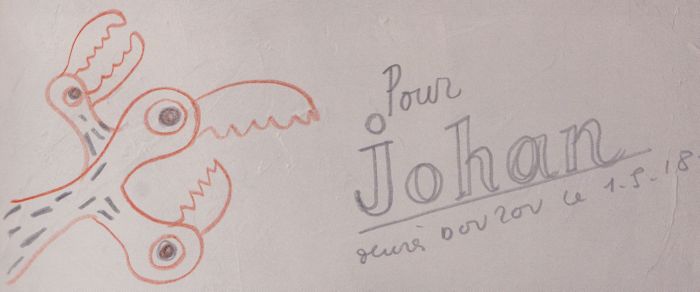 Pour
Johan
denis DOUZOU le 1-5-18.